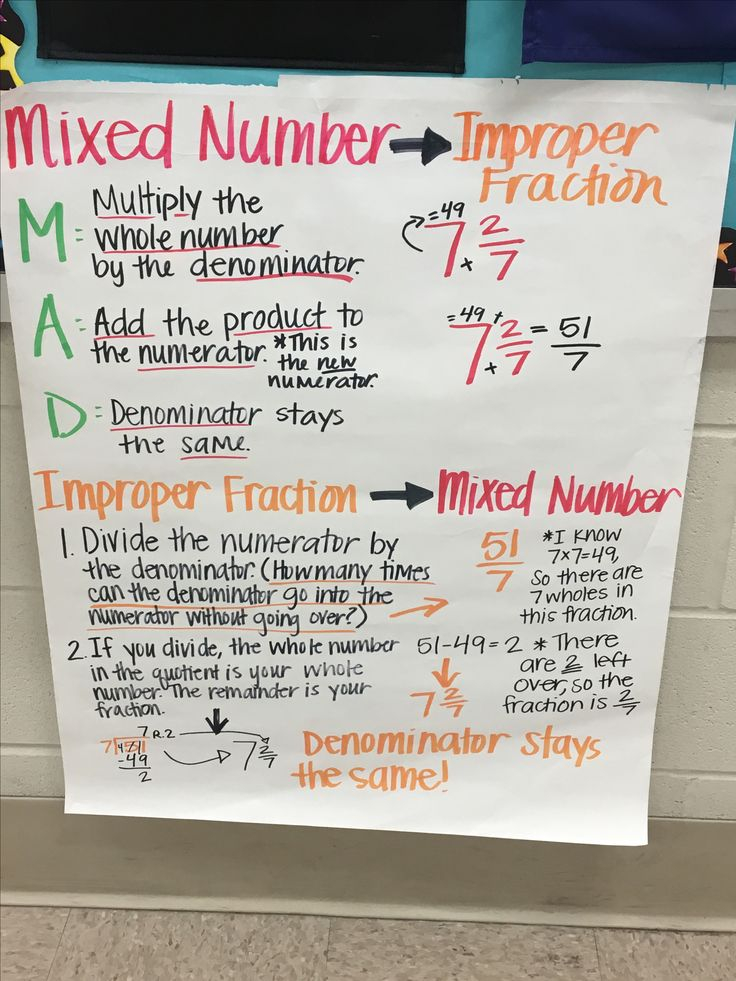 Mixed Number → Improper
Fraction
M = Multiply the
whole number
by the denominator.
=49
7 2/7
x
A = Add the product to
the numerator. *This is
the new
numerator.
=49 +
7 2/7 = 51/7
x
D = Denominator stays
the same.
Improper Fraction → Mixed Number
1. Divide the numerator by
the denominator. (How many times
can the denominator go into the
numerator without going over?)
51/7
*I know
7x7=49,
So there are
7 wholes in
this fraction.
2. If you divide, the whole number
in the quotient is your whole
number. The remainder is your
fraction.
51-49=2 *There
are 2 left
over, so the
fraction is 2/7
7 2/7
7 R.2
7 51
-49
2
7 2/7
Denominator stays
the same!